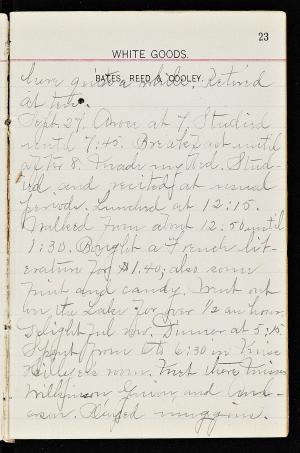 23
WHITE GOODS.
BATES, REED & COOLEY.
here quite a while. Retired
at ten.
Sept. 27. Arose at 7. Studied
until 7:45. Breakfast until
after 8. Made my bed. Stud-
ied and recited at usual
periods. Lunched at 12:15.
Walked from about 12:50 until
1:30. Bought a French lit-
erature for $1.40; also some
fruit and candy. Went out
on the Lake for over ½ an hour.
Delightful row. Dinner at 5:15.
Spent from 6 to 6:30 in Miss
room. Met there Misses
Wilkinson, and And-
erson. Played muggins.